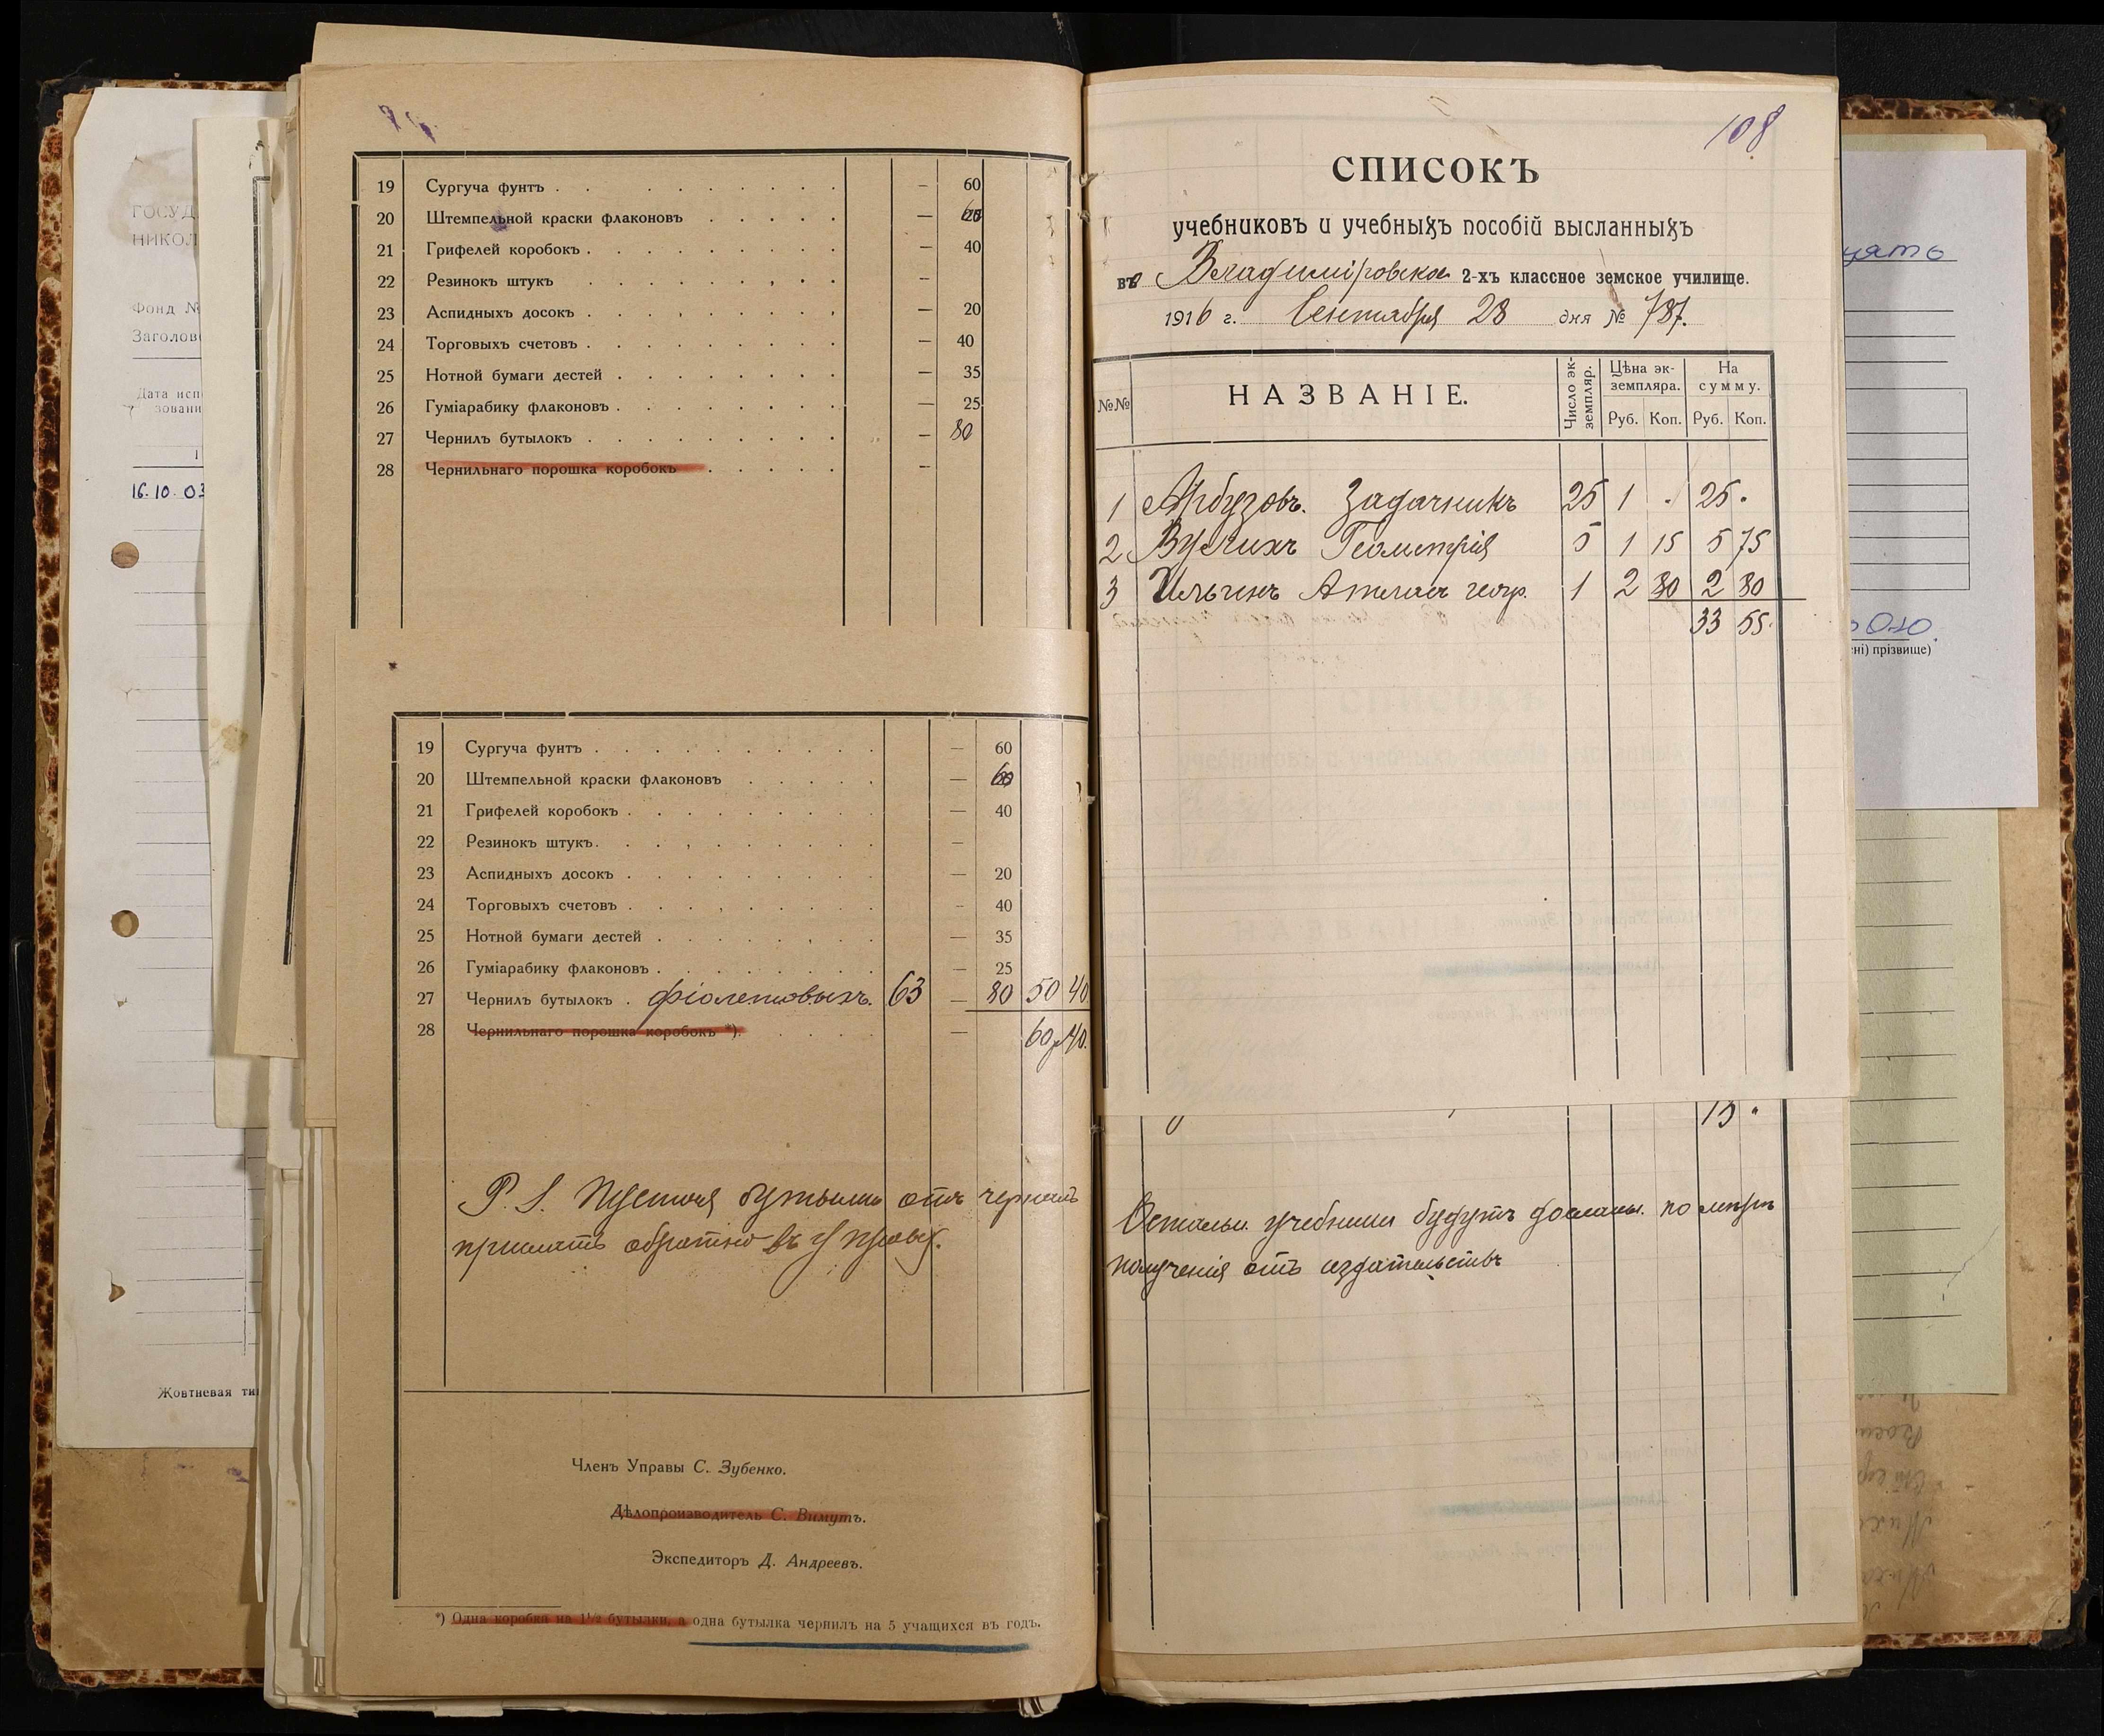 ГОСУД
НИКОЛ
Фонд №
Заголов
Дата исп
зовани
1
16.10.03
Жовтневая ти
19 Сургуча фунтъ — 60
20 Штемпельной краски флаконовъ —
21 Грифелей коробокъ — 40
22 Резинокъ штукъ —
23 Аспидныхъ досокъ — 20
24 Торговыхъ счетовъ — 40
25 Нотной бумаги дестей — 35
26 Гуміарабику флаконовъ — 25
27 Чернилъ бутылокъ — 80
28 Чернильнаго порошка коробокъ —
19 Сургуча фунтъ — 60
20 Штемпельной краски флаконовъ — 60
21 Грифелей коробокъ — 40
22 Резинокъ штукъ —
23 Аспидныхъ досокъ — 20
24 Торговыхъ счетовъ — 40
25 Нотной бумаги дестей — 35
26 Гуміарабику флаконовъ — 25
27 Чернилъ бутылокъ фіолетовыхъ. 63 — 80 50 40
28 Чернильнаго порошка коробокъ *). — 60 р 40.
P. S. Пустыя бутылки отъ чернилъ
прислать обратно въ Управу.
Членъ Управы С. Зубенко.
Дѣлопроизводитель С. Вимутъ.
Экспедиторъ Д. Андреевъ.
*) Одна коробка на 1½ бутылки, а одна бутылка чернилъ на 5 учащихся въ годъ.
108
СПИСОКЪ
учебниковъ и учебныхъ пособій высланныхъ
во Владиміровское 2-хъ классное земское училище.
1916 г. Сентября 28 дня № 787.
№№ НАЗВАНІЕ. Число эк-земпляр. Цѣна эк-земпляра. На сумму.
Руб. Коп. Руб. Коп.
1 Арбузовъ. Задачникъ 25 1 . 25 .
2 Вулихъ Геометрія 5 1 15 5 75
3 Ильинъ Атласъ геогр. 1 2 80 2 80
33 55.
15 "
Остальн. учебники будутъ досланы по мѣрѣ
полученія отъ издательствъ
цять
ені) прізвище)